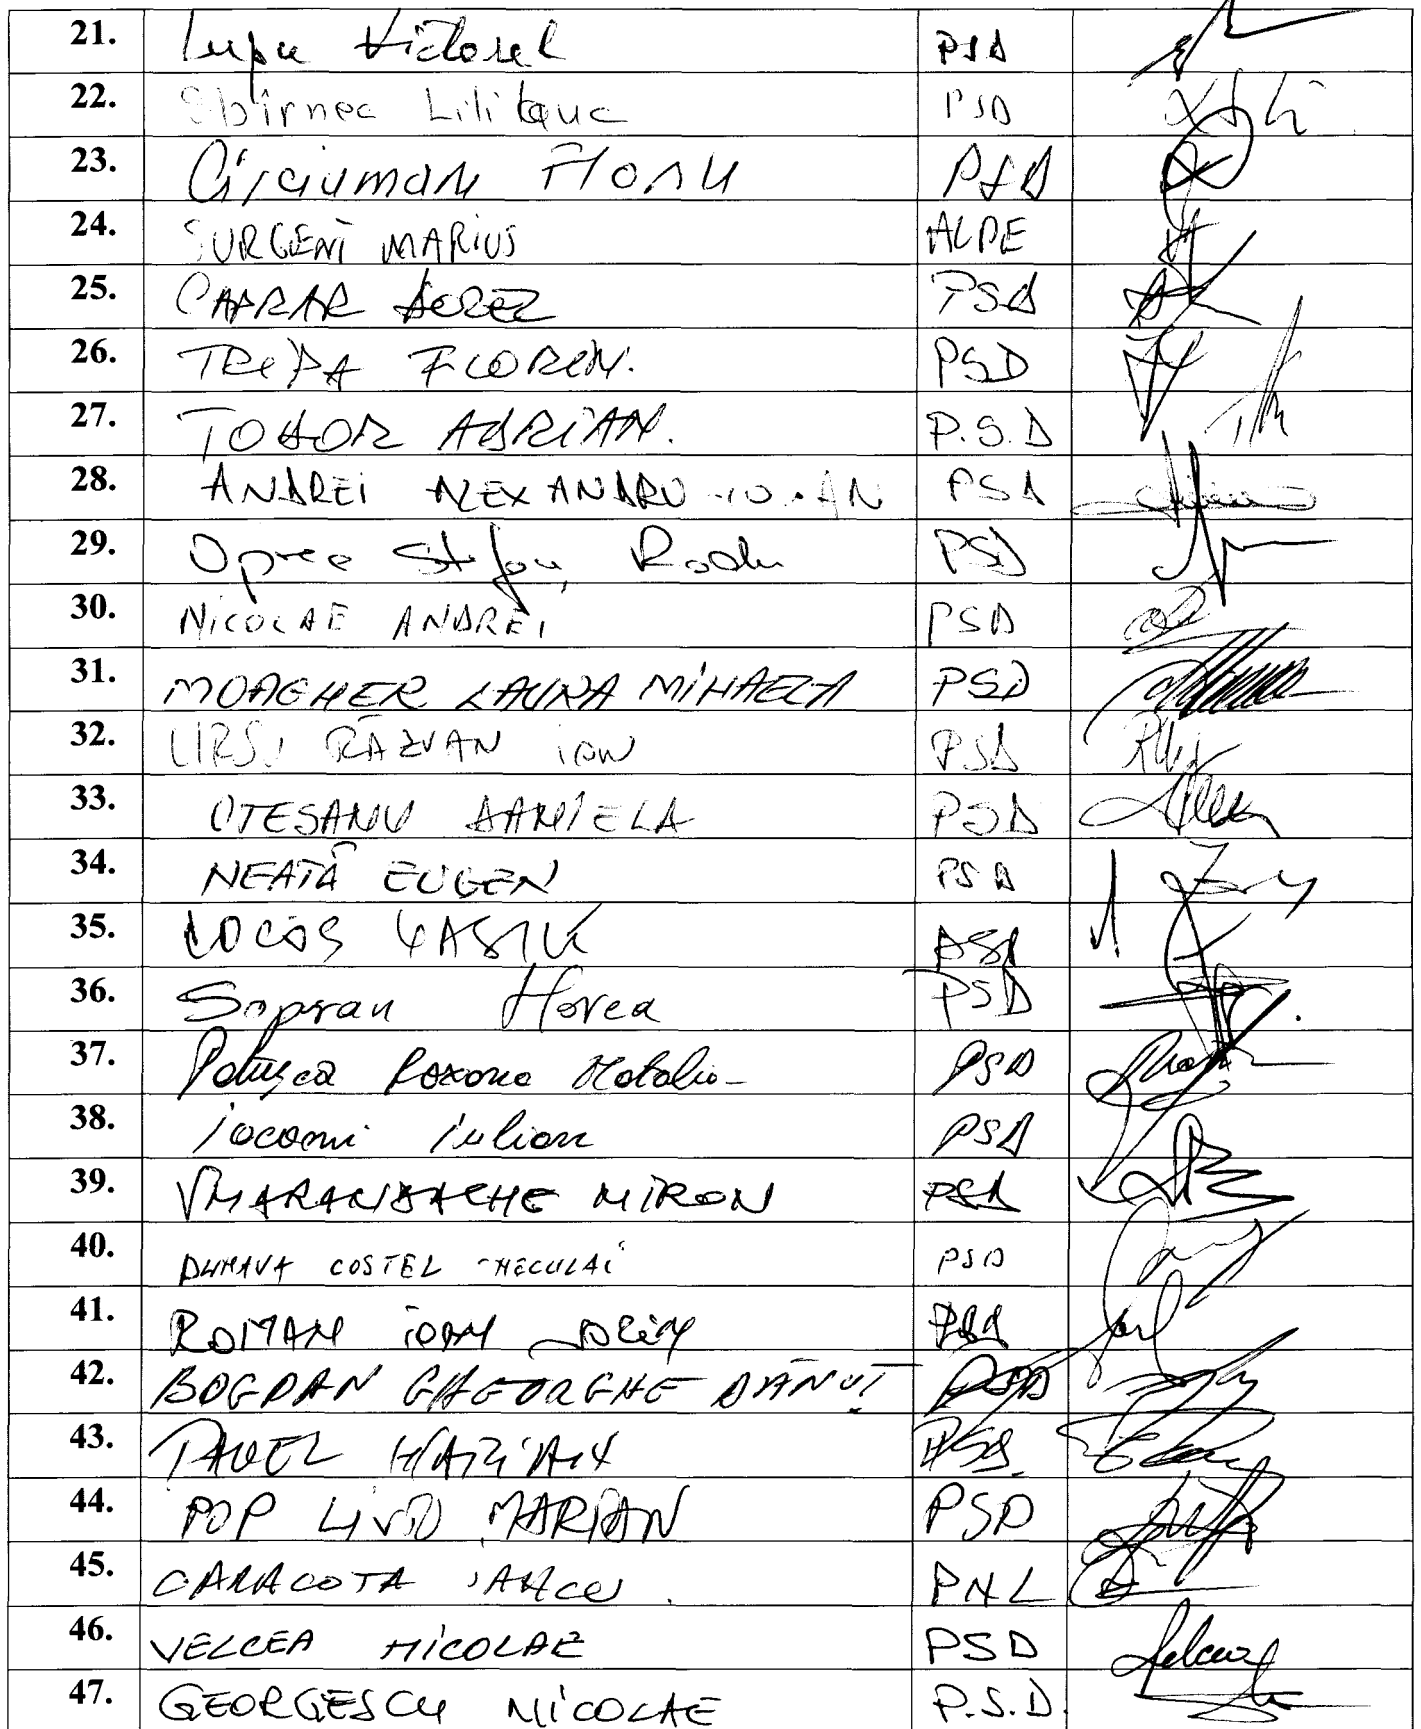 21. Lupu Victorel PSD
22. Sbîrnea Liliana PSD
23. Circiumaru Florin PSD
24. SURGENT MARIUS ALDE
25. PSD
26. TRIPA FLORIN. PSD
27. TODOR ADRIAN. P.S.D
28. ANDREI ALEXANDRU IOAN PSD
29. Oprea Stefan, Radu PSD
30. NICOLAE ANDREI PSD
31. MOAGHER LAURA MIHAELA PSD
32. URSU RĂZVAN ION PSD
33. OTESANU DANIELA PSD
34. NEATĂ EUGEN PSD
35. COCOȘ VASILE PSD
36. Sopran Horea PSD
37. Patușca Roxana Natalia PSD
38. Iacomi Iulian PSD
39. SMARANDACHE MIRON PSD
40. DUNAVA COSTEL NECULAI PSD
41. ROMAN IOAN SORIN PSD
42. BOGDAN GHEORGHE DĂNUȚ PSD
43. PAVEL MARIAN PSD
44. POP LIVIU MARIAN PSD
45. CARACOTA IANCU PNL
46. VELCEA NICOLAE PSD
47. GEORGESCU NICOLAE P.S.D.